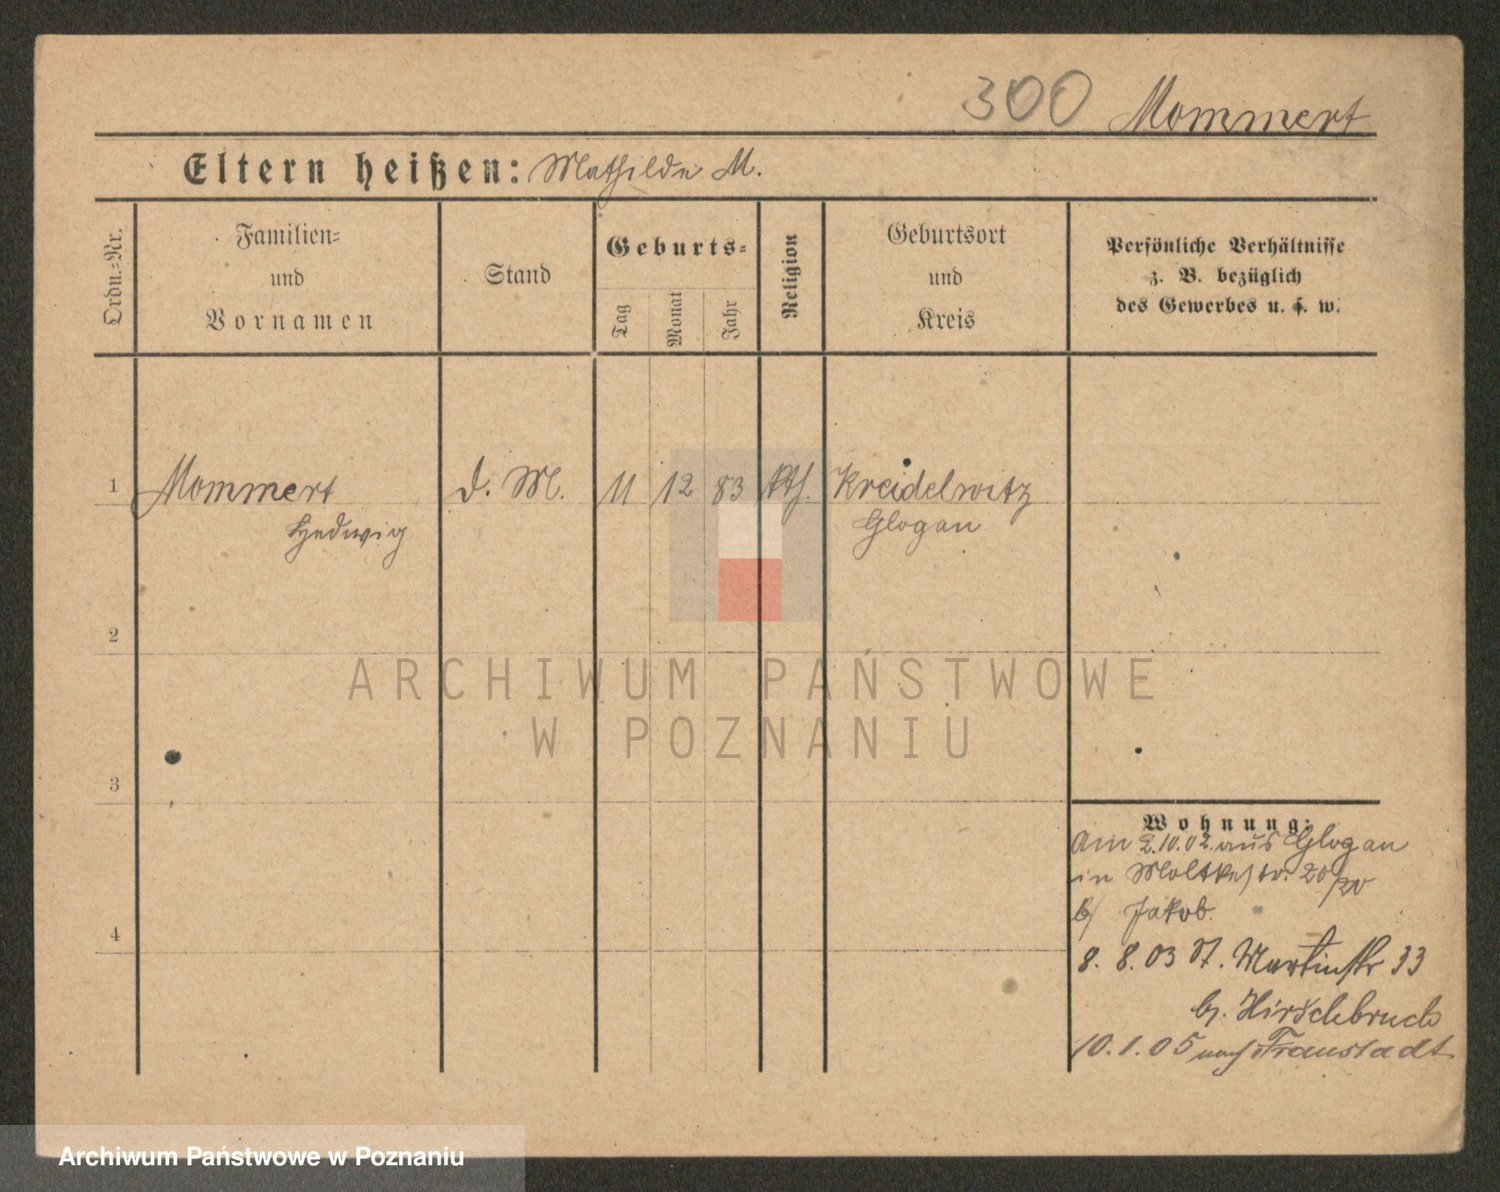 300 Mommert
Eltern heißen: Mathilde M.
Ordn.=Nr.
Familien=
und
Vornamen
Stand
Geburts=
Tag
Monat
Jahr
Religion
Geburtsort
und
Kreis
Persönliche Verhältnisse
z. B. bezüglich
des Gewerbes u. s. w.
1 Mommert d. M. 11 12 83 kth. Kreidelwitz
Hedwig Glogau
2
ARCHIWUM PAŃSTWOWE
W POZNANIU
3
Wohnung:
Am 2.10.02. aus Glogau
in Moltkestr. 20/20
b/ Jakob.
4
8. 8. 03 St. Martinstr 33
b. Hirschbruch
10. 1. 05 nach Fraustadt
Archiwum Państwowe w Poznaniu